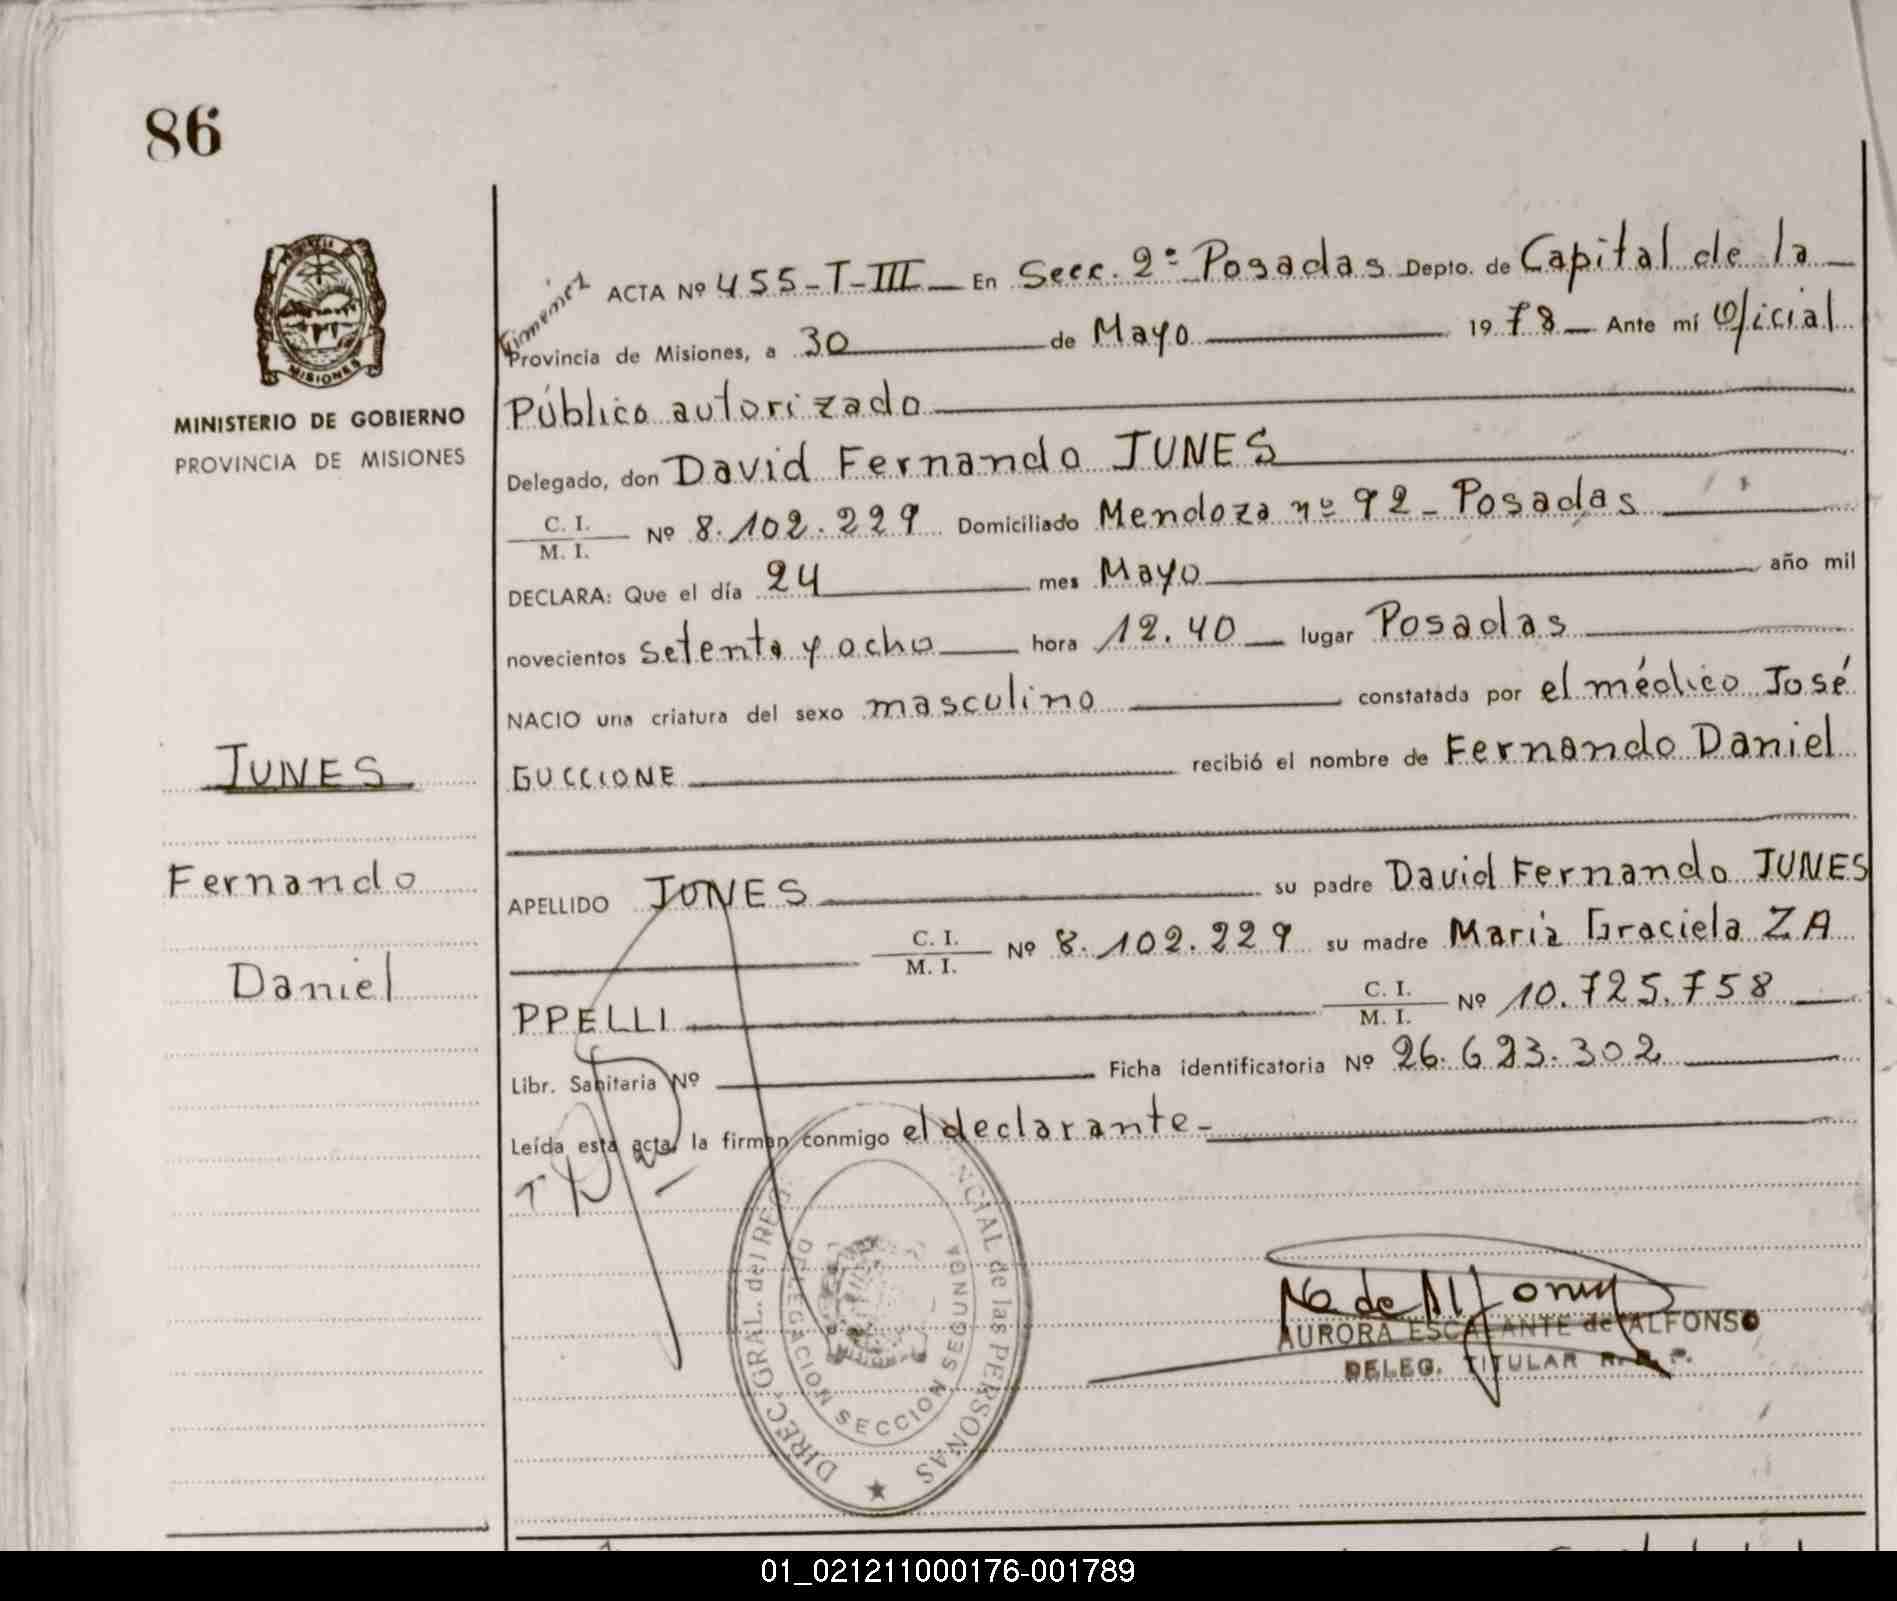 86
MISIONES
MINISTERIO DE GOBIERNO
PROVINCIA DE MISIONES
JUNES
Fernando
Daniel
Gimenez
ACTA Nº 455-T-III — En Secc. 2ª Posadas Depto. de Capital de la
Provincia de Misiones, a 30 de Mayo 1978 — Ante mí Oficial
Público autorizado
Delegado, don David Fernando JUNES
C. I. / M. I. Nº 8.102.229 Domiciliado Mendoza nº 92 - Posadas
DECLARA: Que el día 24 mes Mayo año mil
novecientos setenta y ocho hora 12.40 lugar Posadas
NACIO una criatura del sexo masculino constatada por el médico José
GUCCIONE recibió el nombre de Fernando Daniel
APELLIDO JUNES su padre David Fernando JUNES
C. I. / M. I. Nº 8.102.229 su madre Maria Graciela ZA
PPELLI C. I. / M. I. Nº 10.725.758
Libr. Sanitaria Nº Ficha identificatoria Nº 26.623.302
Leída esta acta, la firman conmigo el declarante -
DIREC. GRAL. del REG. NCIAL de las PERSONAS
DELEGACION SECCION SEGUNDA
AURORA ESCALANTE de ALFONSO
DELEG. TITULAR R. P.
01_021211000176-001789